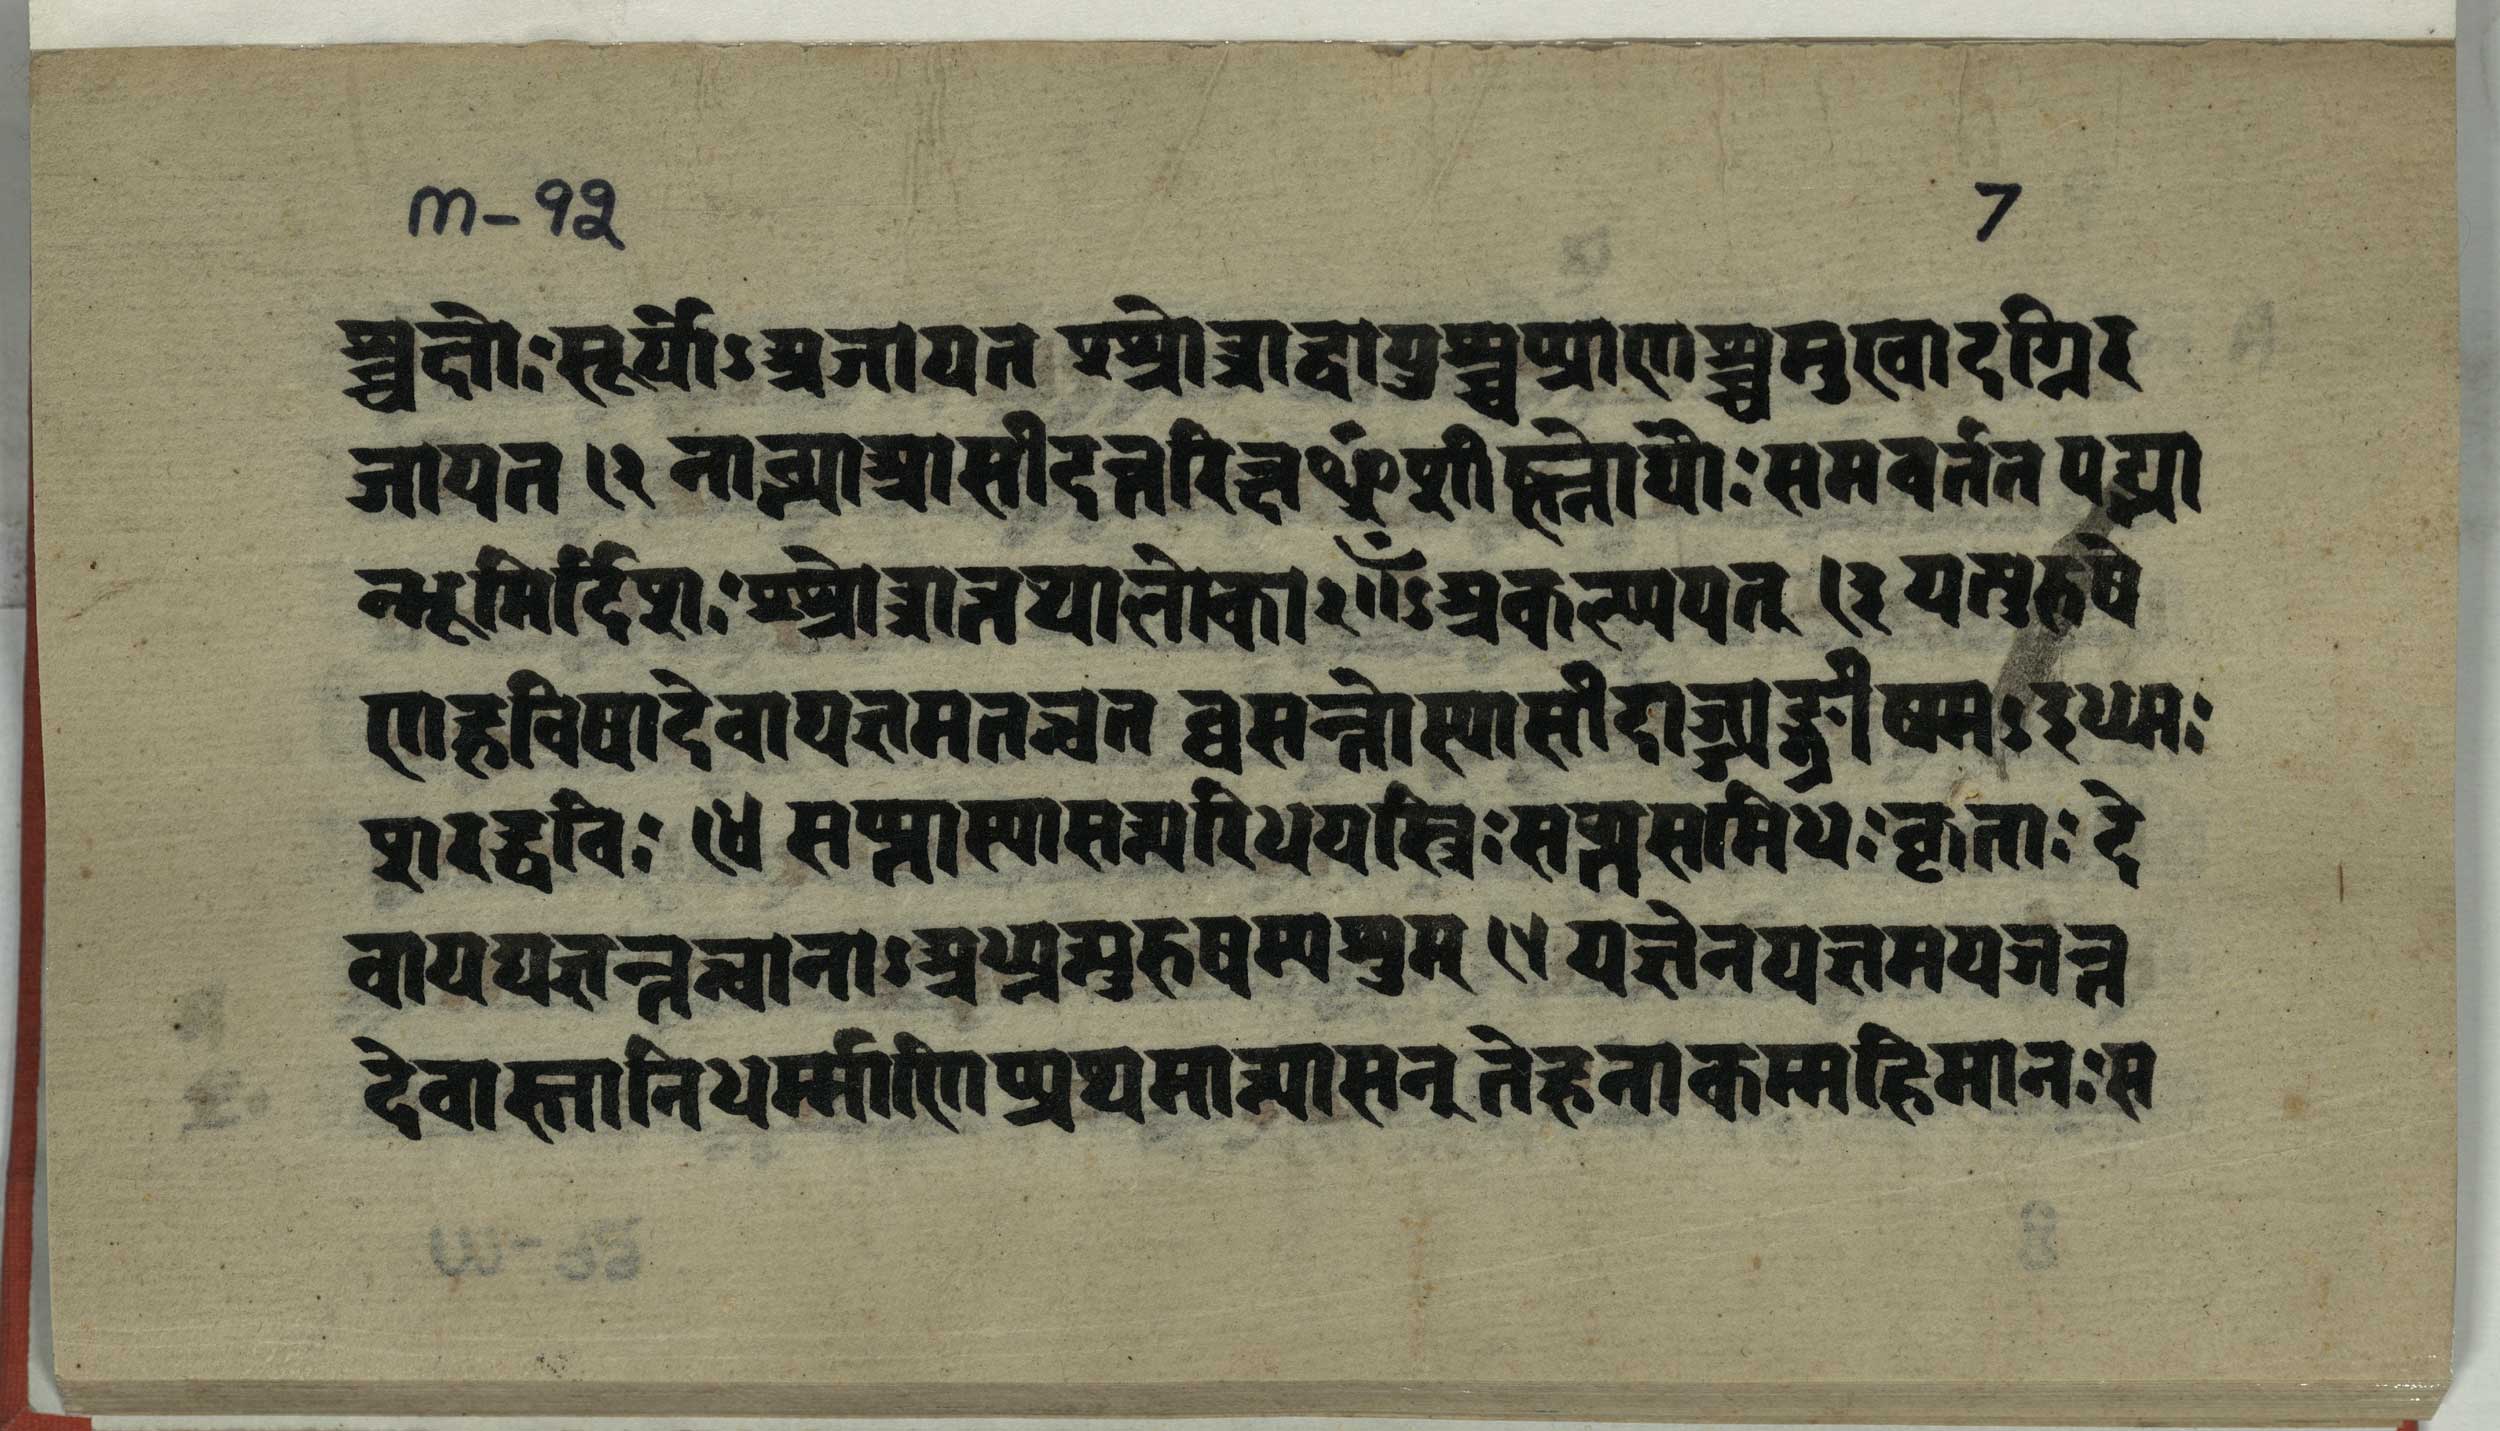 m-१२ 7
श्चक्षोः सूर्योऽअजायत श्श्रोत्राद्वायुश्च प्प्राणश्च मुखादग्निर
जायत १२ नाब्भ्याआसीदन्तरिक्षᳪ शीर्ष्ण्णोद्यौः समवर्त्तत पद्भ्या
म्भूमिर्दिशः श्श्रोत्रात्तथालोका२ँ॥ऽअकल्प्पयन् १३ यत्पुरुषे
णहविषादेवायज्ञमतन्न्वत व्वसन्तोस्यासीदाज्ज्यङ्ग्रीष्मऽइध्मः
शरद्धविः १४ सप्प्तास्यासन्न्परिधयस्त्रिः सप्प्तसमिधः कृताः दे
वायद्यज्ञन्तन्न्वानाऽअबध्नन्पुरुषम्पशुम् १५ यज्ञेनयज्ञमयजन्त
देवास्तानिधर्म्माणिप्प्रथमान्न्यासन् तेहनाकम्महिमानः स